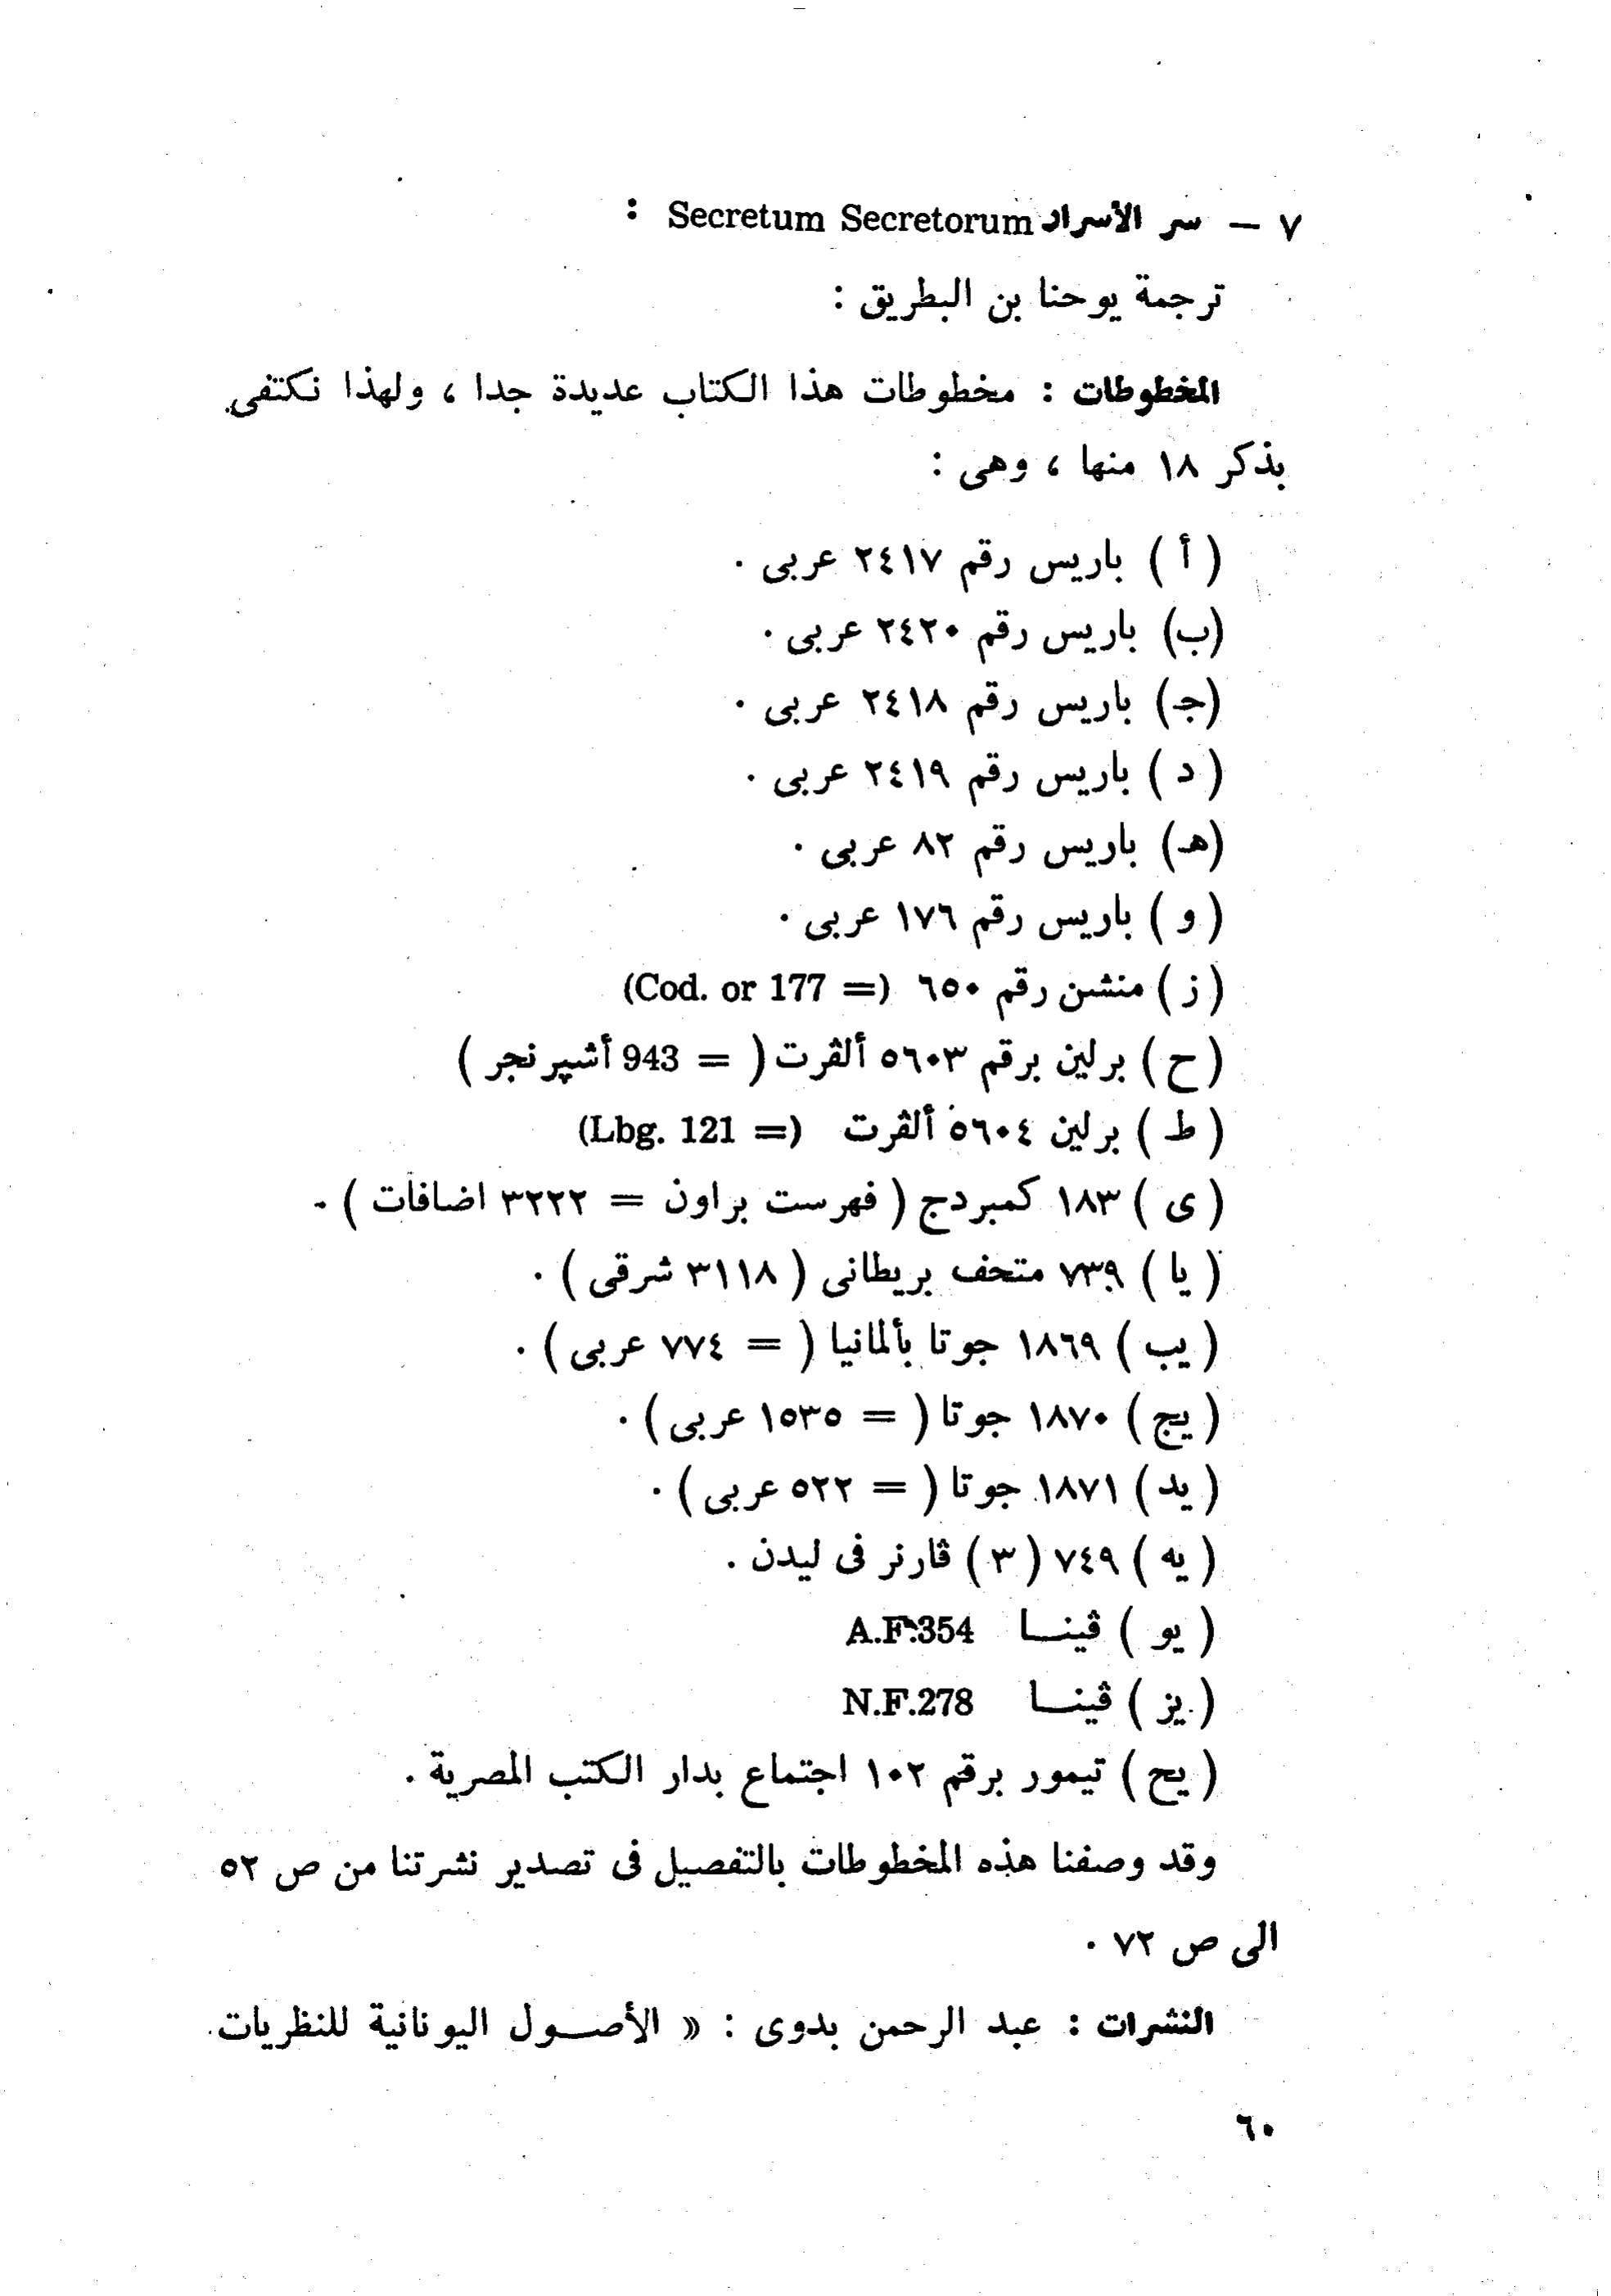 ٧ — سر الأسرار Secretum Secretorum :
ترجمة يوحنا بن البطريق :
المخطوطات : مخطوطات هذا الكتاب عديدة جدا ، ولهذا نكتفى
بذكر ١٨ منها ، وهى :
( أ ) باريس رقم ٢٤١٧ عربى .
(ب) باريس رقم ٢٤٢٠ عربى .
(جـ) باريس رقم ٢٤١٨ عربى .
( د ) باريس رقم ٢٤١٩ عربى .
(هـ) باريس رقم ٨٢ عربى .
( و ) باريس رقم ١٧٦ عربى .
( ز ) منشن رقم ٦٥٠ (= Cod. or 177)
( ح ) برلين برقم ٥٦٠٣ ألڤرت ( = 943 أشپرنجر )
( ط ) برلين ٥٦٠٤ ألڤرت (= Lbg. 121)
( ى ) ١٨٣ كمبردج ( فهرست براون = ٣٢٢٢ اضافات ) .
( يا ) ٧٣٩ متحف بريطانى ( ٣١١٨ شرقى ) .
( يب ) ١٨٦٩ جوتا بألمانيا ( = ٧٧٤ عربى ) .
( يج ) ١٨٧٠ جوتا ( = ١٥٣٥ عربى ) .
( يد ) ١٨٧١ جوتا ( = ٥٢٢ عربى ) .
( يه ) ٧٤٩ ( ٣ ) ڤارنر فى ليدن .
( يو ) ڤينــا A.F.354
( يز ) ڤينــا N.F.278
( يح ) تيمور برقم ١٠٢ اجتماع بدار الكتب المصرية .
وقد وصفنا هذه المخطوطات بالتفصيل فى تصدير نشرتنا من ص ٥٢
الى ص ٧٢ .
النشرات : عبد الرحمن بدوى : « الأصــول اليونانية للنظريات
٦٠